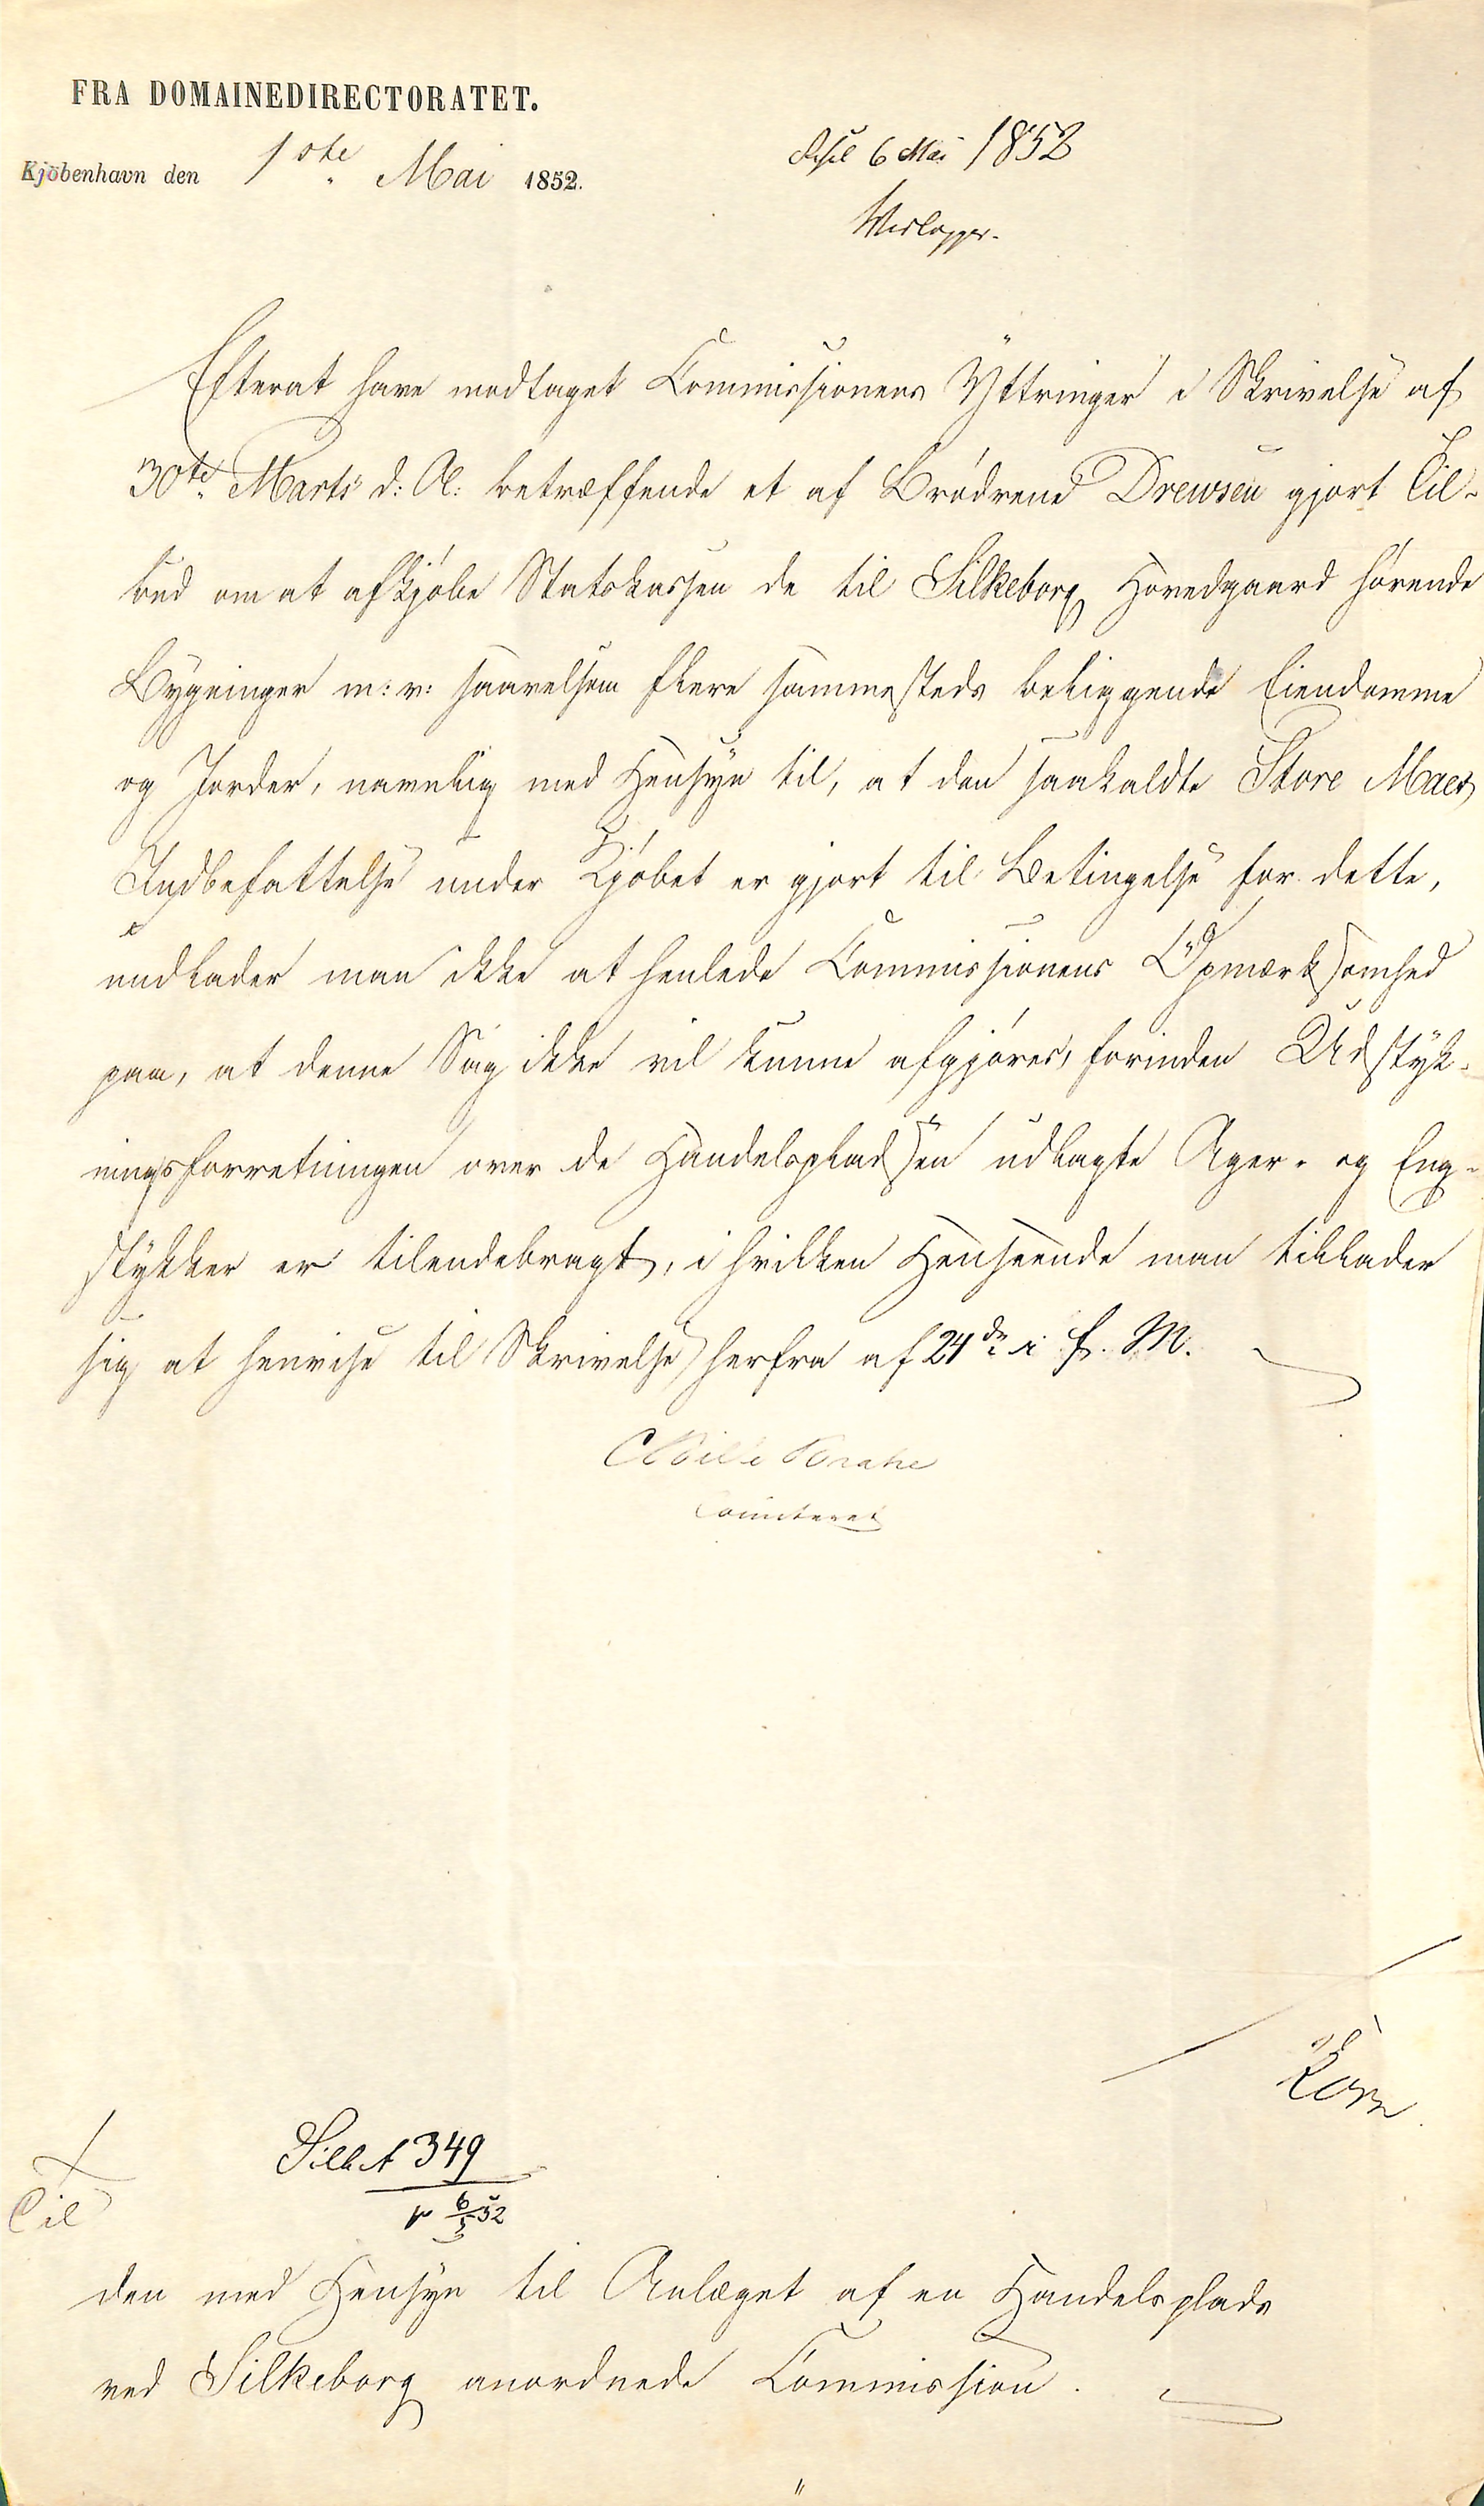 FRA DOMAINEDIRECTORATET.
Kjöbenhavn den 1ste Mai 1852.
6 Mai 1852
Efterat have modtaget Commissionens Yttringer i Skrivelse af
30te Marts d: A: betræffende et af Brødrene Drewsen gjort Til-
bud om at afkjøbe Statskassen de til Silkeborg Hovedgaard hørende
Bygninger m: v: saavelsom flere sammesteds beliggende Eiendomme
og Jorder, navnlig med Hensyn til, at den saakaldte Store Maes
Indbefattelse under Kjøbet er gjort til Betingelse for dette,
undlader man ikke at henlede Commissionens Opmærksomhed
paa, at denne Sag ikke vil kunne afgjøres, forinden Udstyk-
ningsforretningen over de Handelspladsen udlagte Ager- og Eng-
stykker er tilendebragt, i hvilken Henseende man tillader
sig at henvise til Skrivelse herfra af 24de i f. M.
Bille Brahe
Comiteret
Korn
Silk A 349
6/5 52
Til
den med Hensyn til Anlæget af en Handelsplads
ved Silkeborg anordnede Commission.